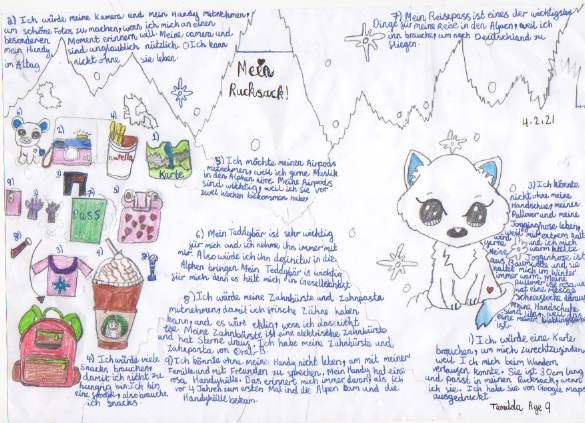 2) Ich würde meine Kamera und mein Handy mitnehmen,
um schöne Fotos zu machen, wenn ich mich an einen
besonderen Moment erinnern will. Meine camera und
mein Handy sind unglaublich nützlich. Ich kann
im Alltag nicht ohne sie leben.
7) Mein Reisepass ist eines der wichtigsten
Dinge für meine Reise in den Alpen, weil ich
ihn brauche, um nach Deutschland zu
fliegen.
Mein
Rucksack!
4.2.21
nutella
Karte
Pass
5) Ich möchte meinen Airpods
mitnehmen, weil ich gerne Musik
in den Alpen höre. Meine Airpods
sind wichtig, weil ich sie vor
zwei Wochen bekommen habe.
6) Mein Teddybär ist sehr wichtig
für mich und ich nehme ihn immer mit
mir. Also würde ich ihn definitiv in die
Alpen bringen. Mein Teddybär ist wichtig
für mich, denn es hält mich in Gesellschaft.
3) Ich könnte
nicht ohne meine
Handschue, meinen
Pullover und meine
Jogginghose leben,
weil es mit
wird und ich mich
gerne warm
Meine Jogginghose ist
aus
hält mich im Winter
immer warm. Meine
pullover ist rosa und
hat eine
schneeflocke darauf.
Meine Handschuhe
sind lila, weil das
eine meiner lieblingsfarben
ist.
8) Ich würde meine Zahnbürste und Zahnpasta
mitnehmen, damit ich frische Zähne haben
kann und es wäre eklig, wenn ich das nicht
tue. Meine Zahnbürste ist eine elektrische Zahnbürste
und hat Sterne draus. Ich habe meine Zahnbürste und
Zahnpasta von Oral-B.
4) Ich würde viele
Snacks brauchen,
damit ich nicht zu
hungrig bin. Ich bin
eine foodie, also brauche
ich snacks.
9) Ich könnte ohne meine Handy nicht leben, um mit meiner
Familie und mit Freunden zu sprechen. Mein Handy hat eine
rosa, Handyhülle. Das erinnert mich immer daran, als ich
vor 4 Jahren zum ersten Mal in die Alpen kam und die
Handyhülle bekam.
1) Ich würde eine Karte
brauchen, um mich zurechtzufinden,
weil ich mich beim Wandern
verlaufen könnte. Sie ist 30cm lang
und passt in meinen Rucksack, wenn
ich sie. Ich habe sie von Google maps
ausgedruckt.
Age 9